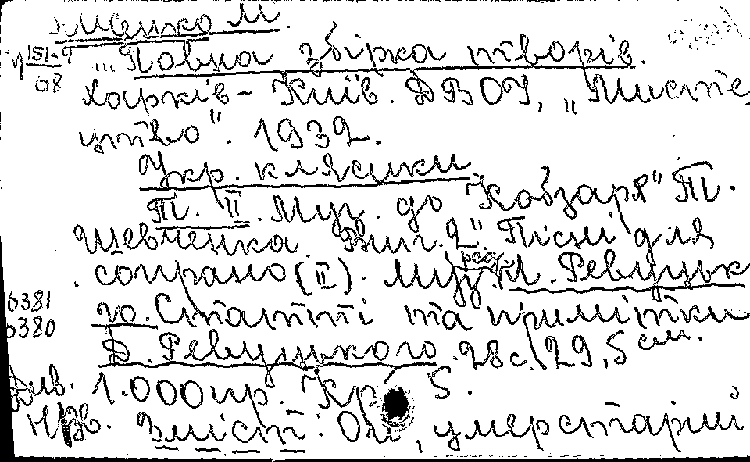 Лисенко М.
ч 151-9/68 „Повна збірка творів.
Харків – Київ. ДВОУ, „Мисте
цтво". 1932.
Укр. клясики
Т. II. Муз. до "Кобзаря" Т.
Шевченка Вип. 2" Пісні для
сопрано (II). Муз. ред. Д. Ревуцько
6381 го. Статті та примітки
6380 Д. Ревуцького. 28 с. 29,5 см.
Див. 1.000 пр. Кр. 5.
НРв. Зміст: Ой, умер старий